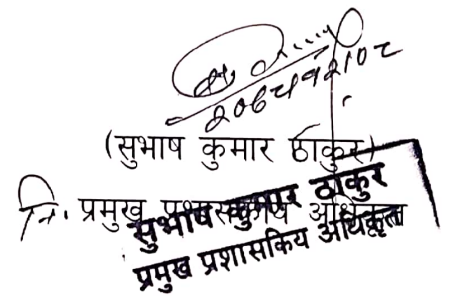 (सुभाष कुमार ठाकुर)
नि. प्रमुख प्रशासकीय अधिकृत
सुभाष कुमार ठाकुर
प्रमुख प्रशासकिय अधिकृत